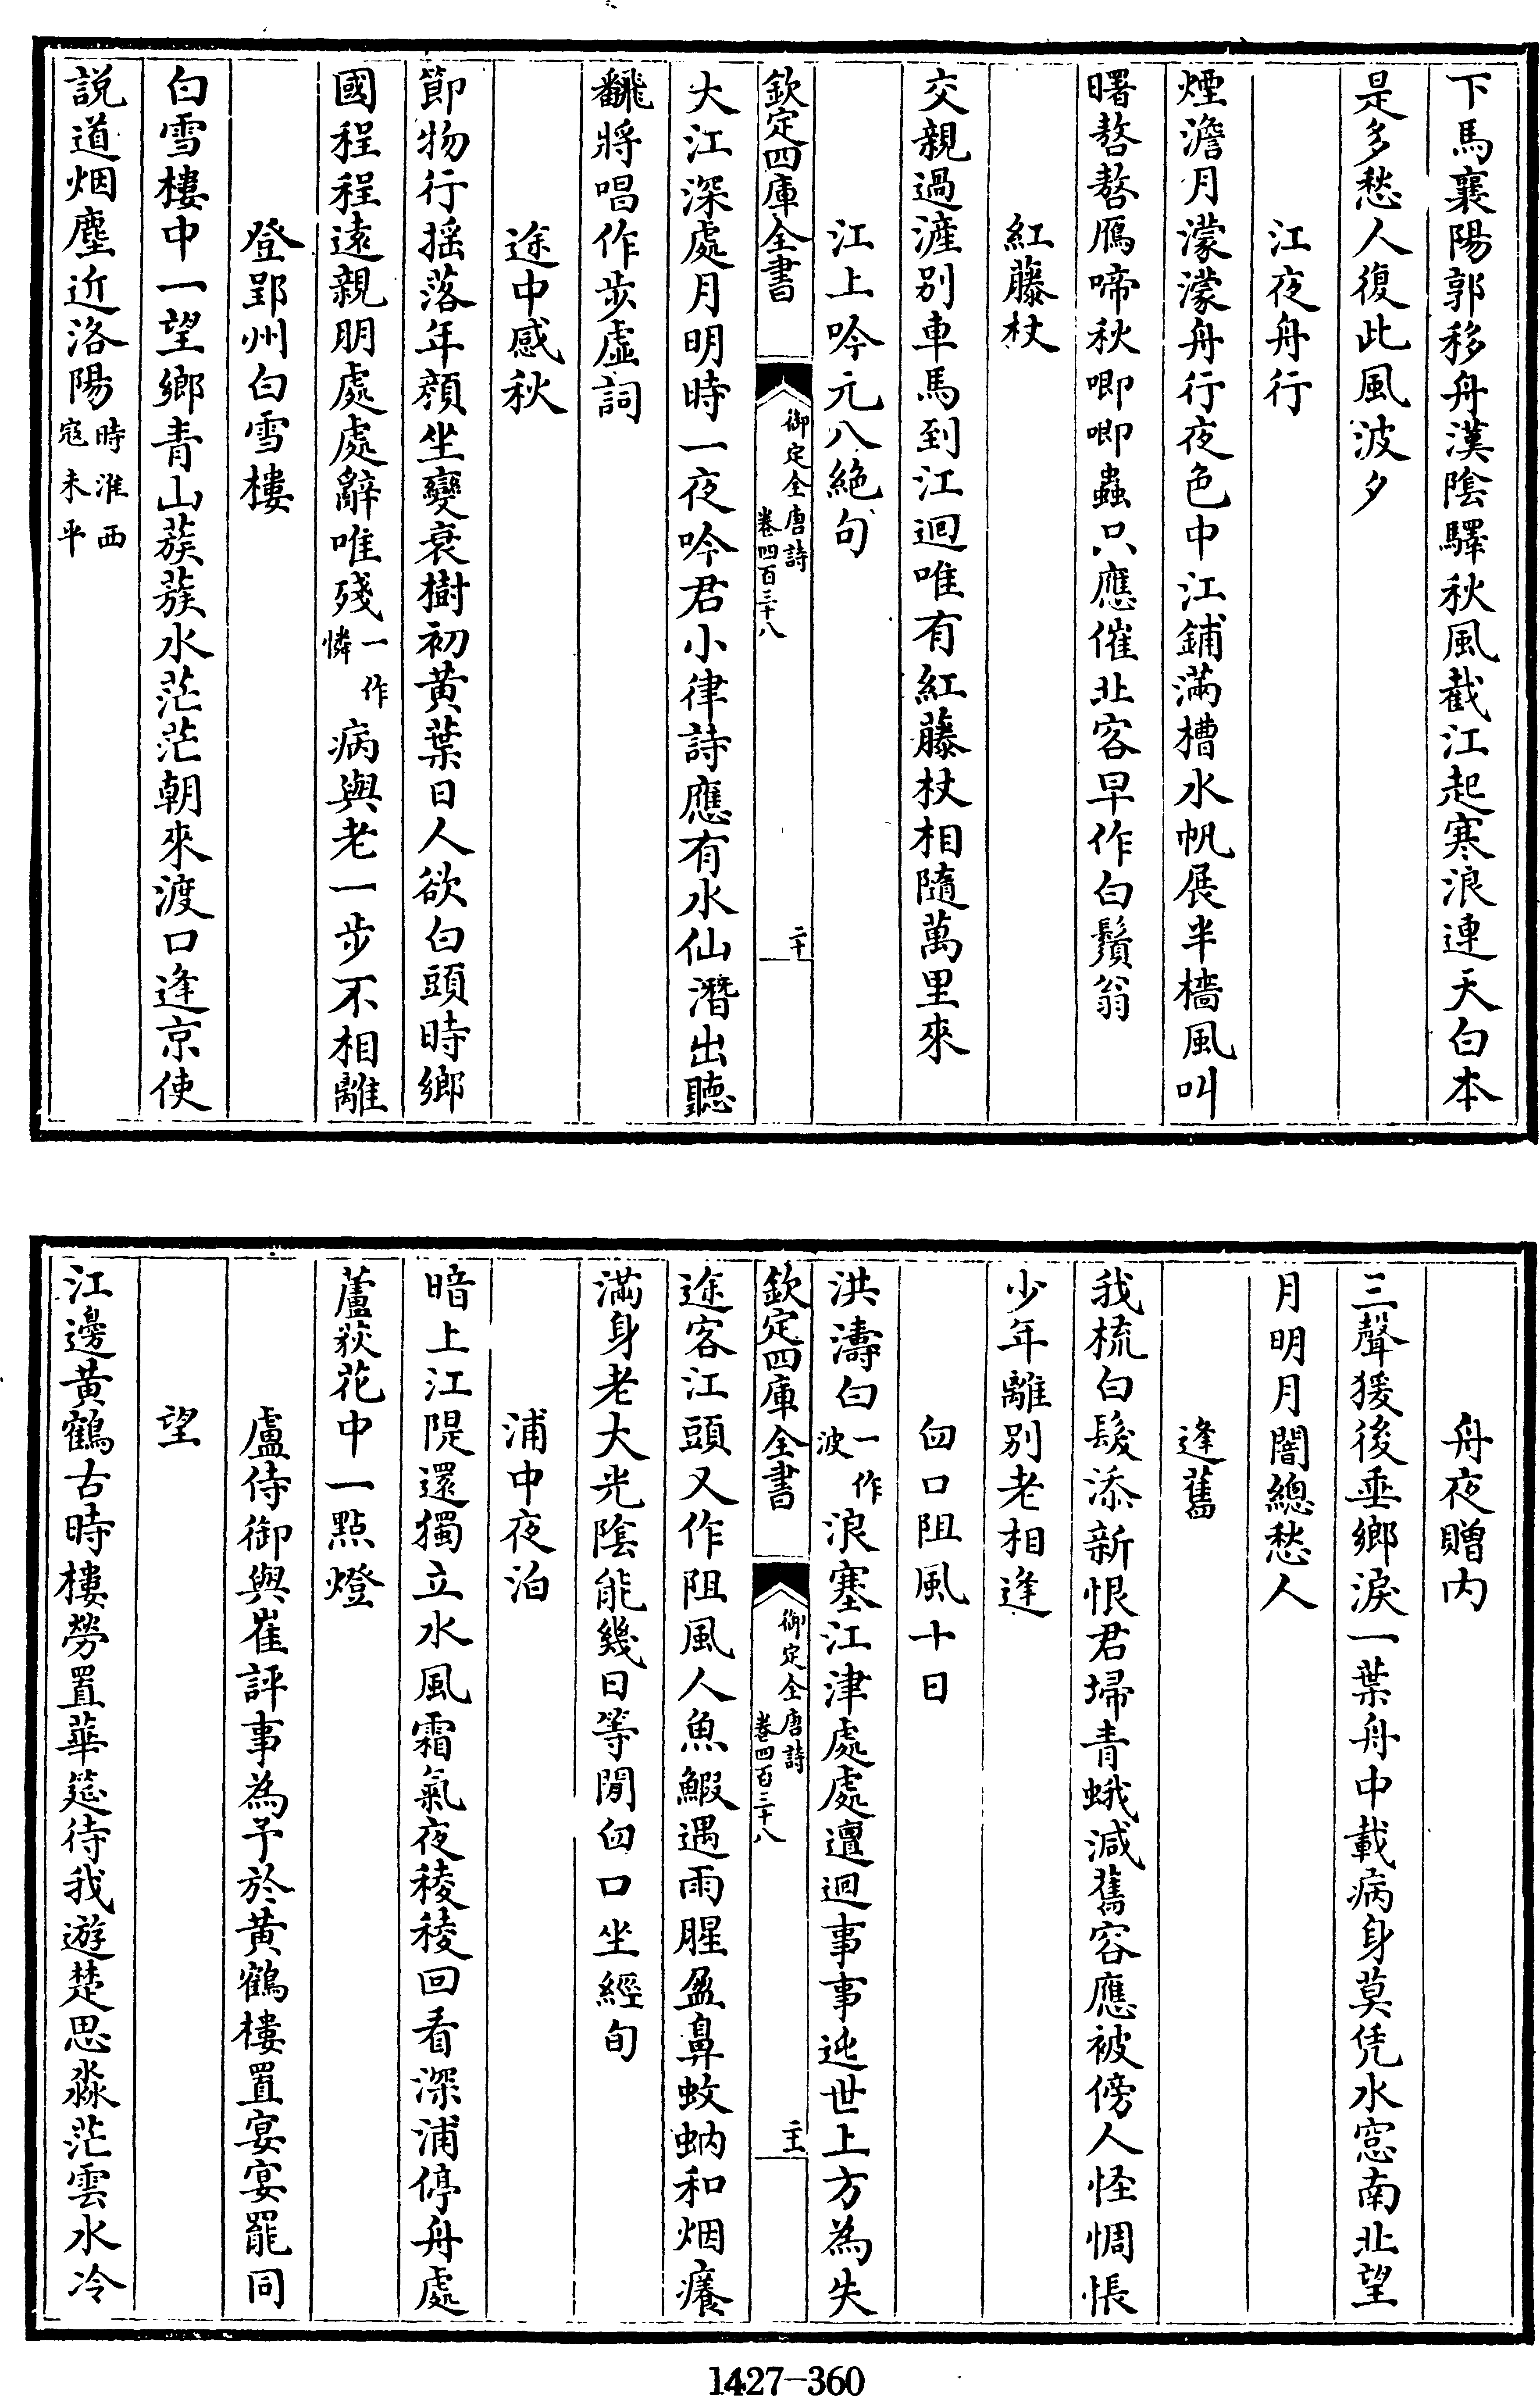 下馬襄陽郭移舟漢隂驛秋風截江起寒浪連天白本
是多愁人復此風波夕
江夜舟行
煙澹月濛濛舟行夜色中江鋪滿槽水帆展半檣風叫
曙嗸嗸鴈啼秋唧唧蟲只應催北客早作白鬚翁
紅藤杖
交親過滻别車馬到江迴唯有紅藤杖相隨萬里來
江上吟元八絶句
欽定四庫全書
御定全唐詩
卷四百三十八
二十
大江深處月明時一夜吟君小律詩應有水仙潛出聽
翻將唱作步虛詞
途中感秋
節物行摇落年顔坐變衰樹初黄葉日人欲白頭時鄉
國程程遠親朋處處辭唯殘一作憐病與老一步不相離
登郢州白雪樓
白雪樓中一望鄉青山蔟蔟水茫茫朝來渡口逢京使
説道烟塵近洛陽時淮西寇未平
舟夜贈内
三聲猨後垂鄉淚一葉舟中載病身莫凭水窓南北望
月明月闇總愁人
逢舊
我梳白髮添新恨君埽青蛾減舊容應被傍人怪惆悵
少年離别老相逢
臼口阻風十日
洪濤白一作波浪塞江津處處邅迴事事迍世上方為失
欽定四庫全書
御定全唐詩
卷四百三十八
二十一
途客江頭又作阻風人魚鰕遇雨腥盈鼻蚊蚋和烟癢
滿身老大光隂能幾日等閒臼口坐經旬
浦中夜泊
暗上江隄還獨立水風霜氣夜稜稜回看深浦停舟處
蘆荻花中一點燈
盧侍御與崔評事為予於黄鶴樓置宴宴罷同
望
江邊黄鶴古時樓勞置華筵待我遊楚思淼茫雲水冷
1427—360